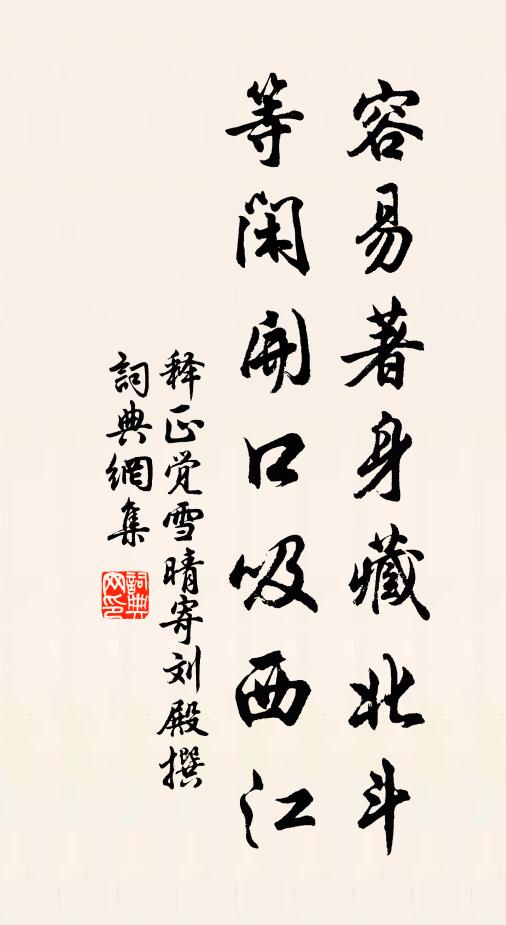 容易著身藏北斗
等閑開口吸西江
释正觉雪晴寄刘殿撰
詞典網集
詞典网印